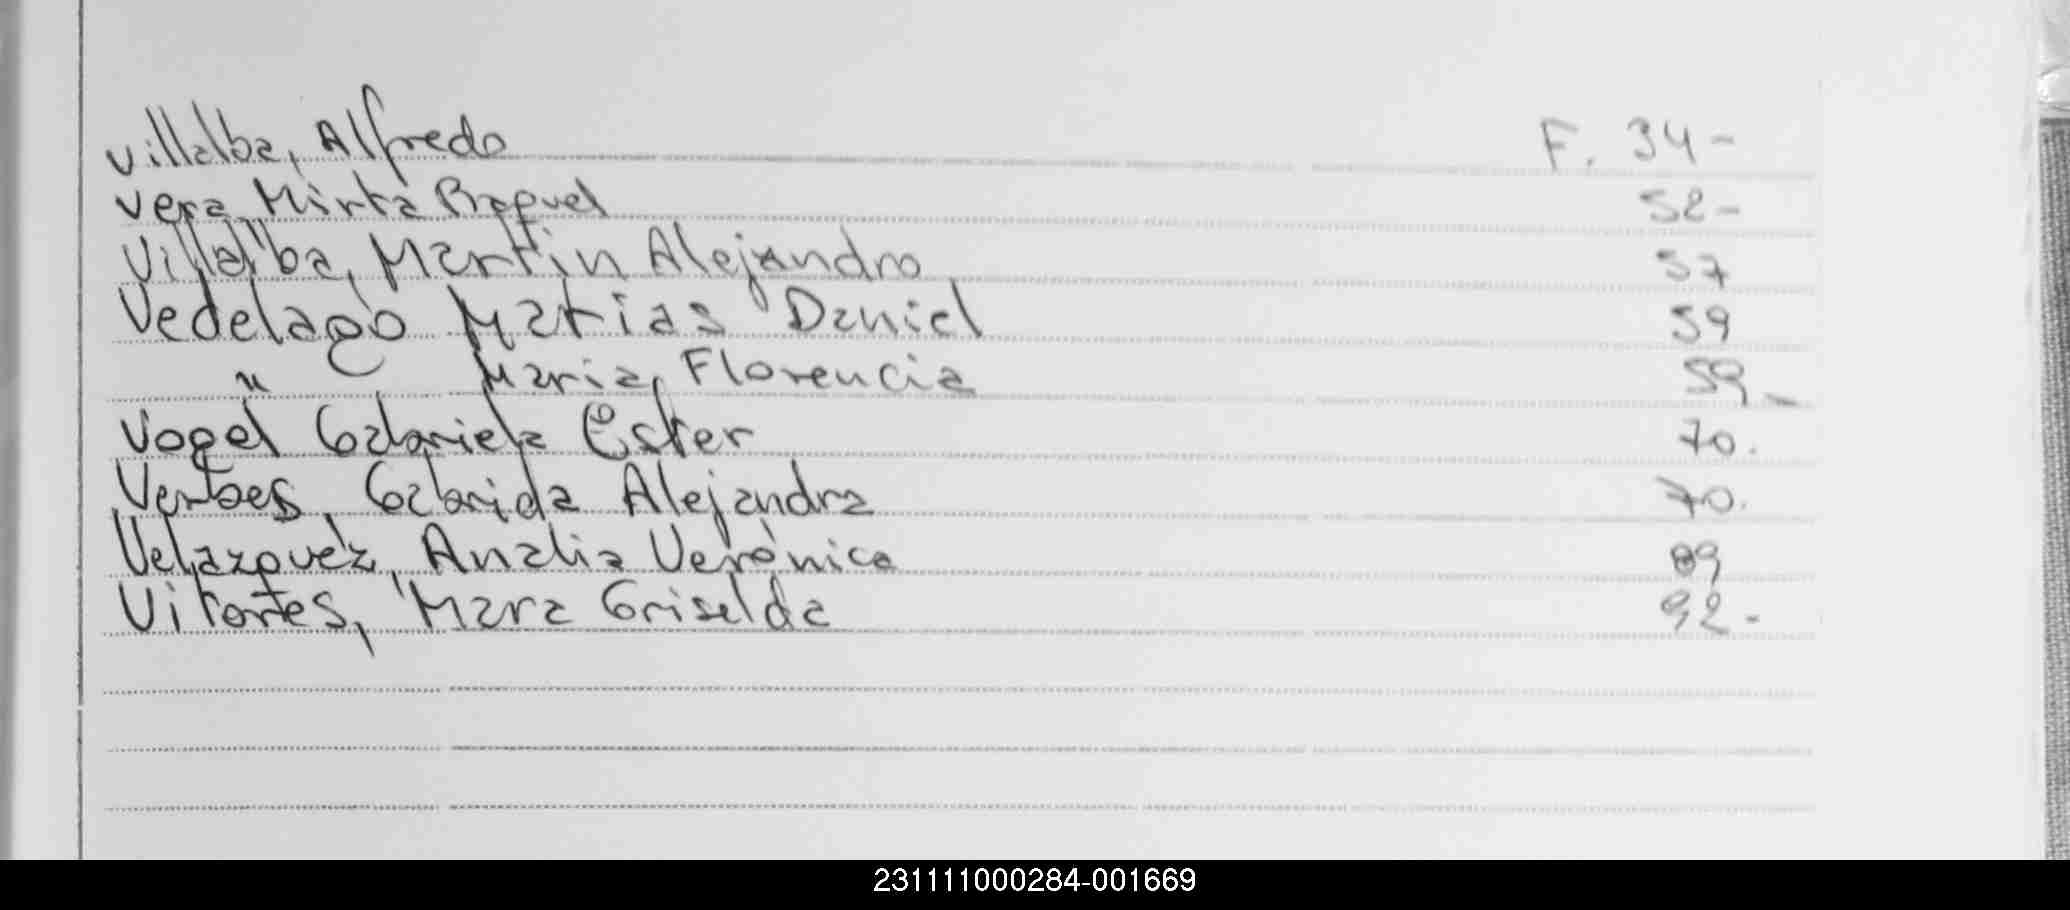 Villalba, Alfredo F. 34-
Vera, Mirta Raquel 52-
Villalba, Martin Alejandro 57
Vedelago Matias Daniel 59
" Maria, Florencia 59-
Vogel Gabriela Ester 70.
Verbes, Gabriela Alejandra 70.
Velazquez, Analia Verónica 89
Vitortes, Mara Griselda 92-
231111000284-001669